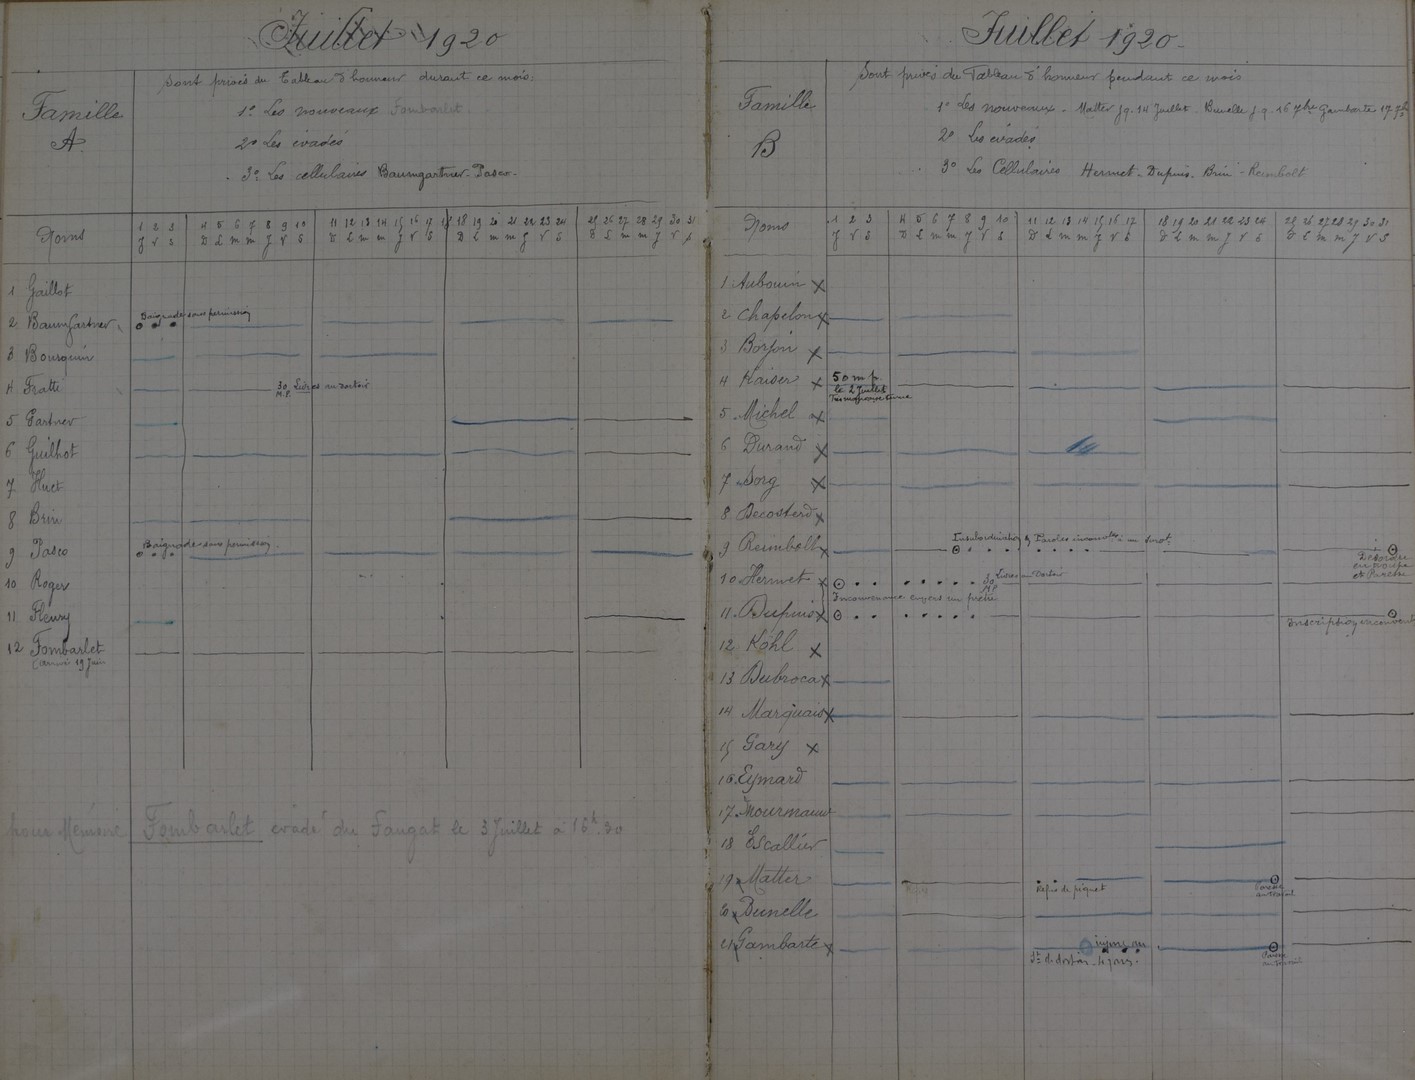 Juillet 1920
Sont privés du Tableau d'honneur durant ce mois:
Famille
A
1º Les nouveaux Fombarlet
2º Les évadés
3º Les cellulaires Baumgartner - Pasco -
Noms
1 2 3 4 5 6 7 8 9 10 11 12 13 14 15 16 17 18 19 20 21 22 23 24 25 26 27 28 29 30 31
J V S D L m m J V S D L m m J V S D L m m J V S D L m m J V S
1 Gaillot
2 Baumgartner Baignade sans permission
3 Bourguin
4 Fratti 30 M.P. Livres au dortoir
5 Gartner
6 Guilhot
7 Huet
8 Brin
9 Pasco Baignade sans permission.
10 Roger
11 Fleury
12 Fombarlet
(arrivé 19 Juin
pour Mémoire Fombarlet évadé du Faugat le 3 Juillet à 16h.30
Juillet 1920 -
Sont privés du Tableau d'honneur pendant ce mois
Famille
B
1º Les nouveaux - Matter jq. 14 Juillet - Bunelle jq. 16 Gambarte 17
2º Les évadés
3º Les Cellulaires Hermet - Dupuis. Brin - Reimbolt
Noms
1 2 3 4 5 6 7 8 9 10 11 12 13 14 15 16 17 18 19 20 21 22 23 24 25 26 27 28 29 30 31
J V S D L m m J V S D L m m J V S D L m m J V S D L m m J V S
1 Aubouin x
2 Chapelon x
3 Borjon x
4 Kaiser x 50 m.p.
le 2 Juillet
5 Michel x
6 Durand x
7 Sorg x
8 Decosterd x
9 Reimbolt x Insubordination & Paroles à un
Désordre
et Paresse
10 Hermet x 30 M.P. Livres au dortoir
Inconvenance envers un
11 Dupuis x
Inscription
12 Kohl x
13 Dubroca x
14 Marquais x
15 Gary x
16 Eymard
17 Mourmaux
18 Escallier
19 Matter Refus de piquet Paresse
au travail
20 Bunelle
21 Gambarte x
Paresse